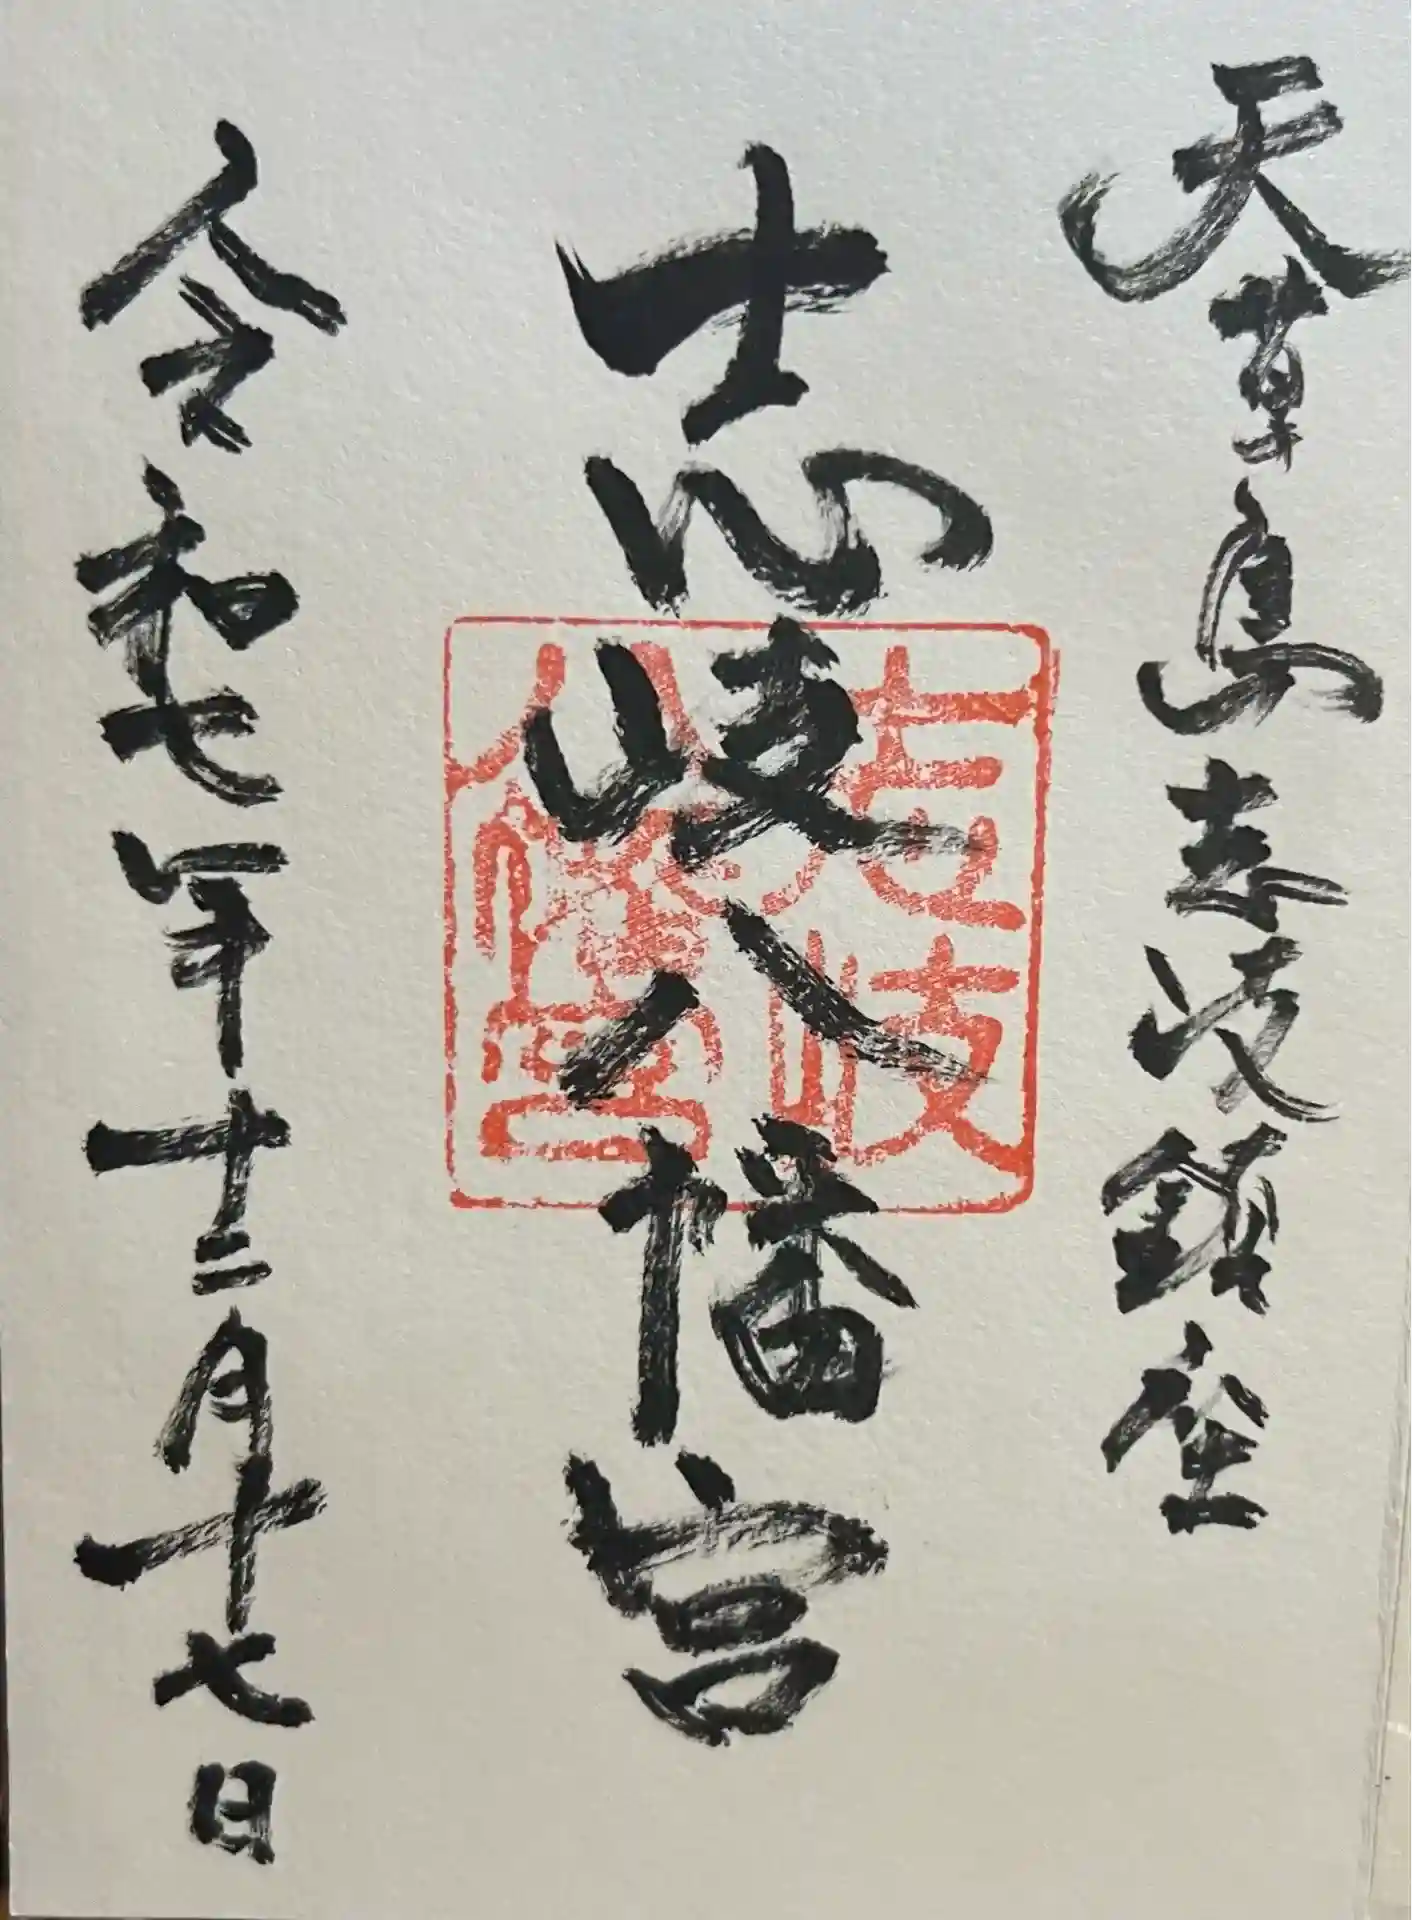 天草島志岐鎮座
志岐八幡宮
志岐
八幡宮
令和七年十二月十七日